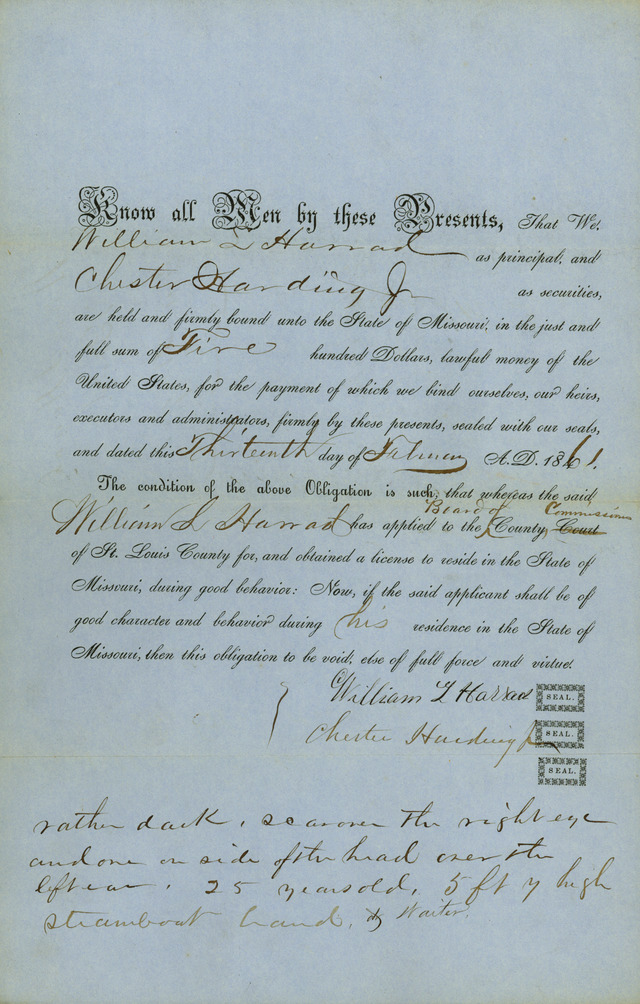 Know all Men by these Presents, That We.
William L Harrad as principal, and
Chester Harding Jr as securities,
are held and firmly bound unto the State of Missouri, in the just and
full sum of Five hundred Dollars, lawful money of the
United States, for the payment of which we bind ourselves, our heirs,
executors and administrators, firmly by these presents, sealed with our seals,
and dated this Thirteenth day of February A.D. 1861.
The condition of the above Obligation is such, that whereas the said
Board of Commissioners
William L Harrad has applied to the County Court
of St. Louis County for, and obtained a license to reside in the State of
Missouri, during good behavior: Now, if the said applicant shall be of
good character and behavior during his residence in the State of
Missouri, then this obligation to be void, else of full force and virtue.
William L Harrad SEAL.
Chester Harding Jr SEAL.
SEAL.
rather dark, scar over the right eye
and one on side of the head over the
left ear, 25 years old, 5 ft 7 high
steamboat hand, & Waiter.